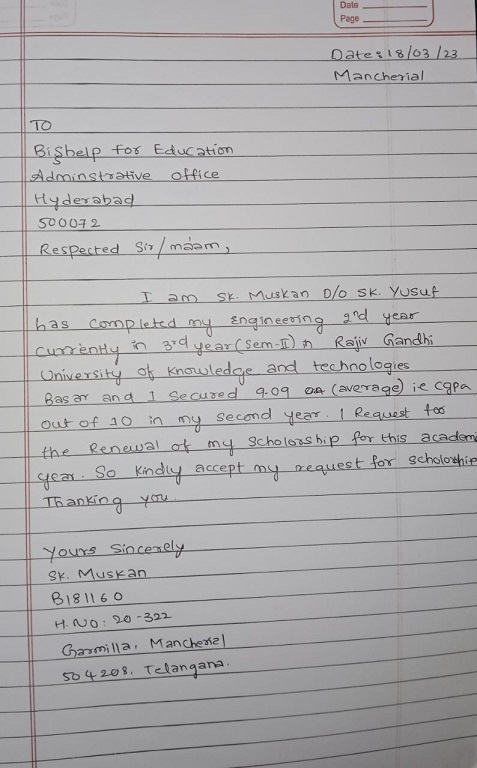 Date
Page
Date: 18/03/23
Mancherial
TO
Bigshelp for Education
Adminstrative office
Hyderabad
500072
Respected Sir/máam,
I am SK. Muskan D/o SK. Yusuf
has completed my Engineering 2nd year
currently in 3rd year (Sem-II) in Rajiv Gandhi
University of Knowledge and technologies
Basar and I Secured 9.09 (average) ie cgpa
out of 10 in my second year. I Request for
the Renewal of my Scholorship for this academi
year. So Kindly accept my request for scholorship
Thanking you.
yours Sincerely
SK. Muskan
B181160
H.NO: 20-322
Garmilla, Mancherial
504208, Telangana.